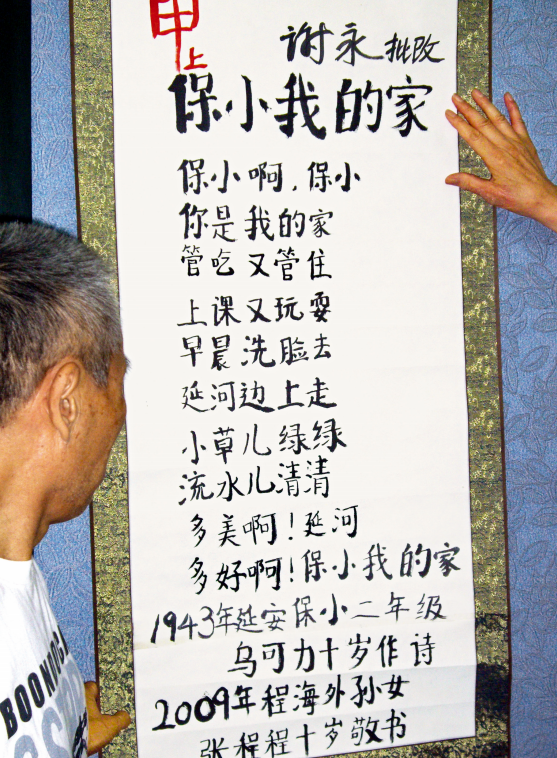 甲
上
谢永批改
保小我的家
保小啊,保小
你是我的家
管吃又管住
上课又玩耍
早晨洗脸去
延河边上走
小草儿绿绿
流水儿清清
多美啊!延河
多好啊!保小我的家
1943年延安保小二年级
乌可力十岁作诗
2009年程海外孙女
张程程十岁敬书